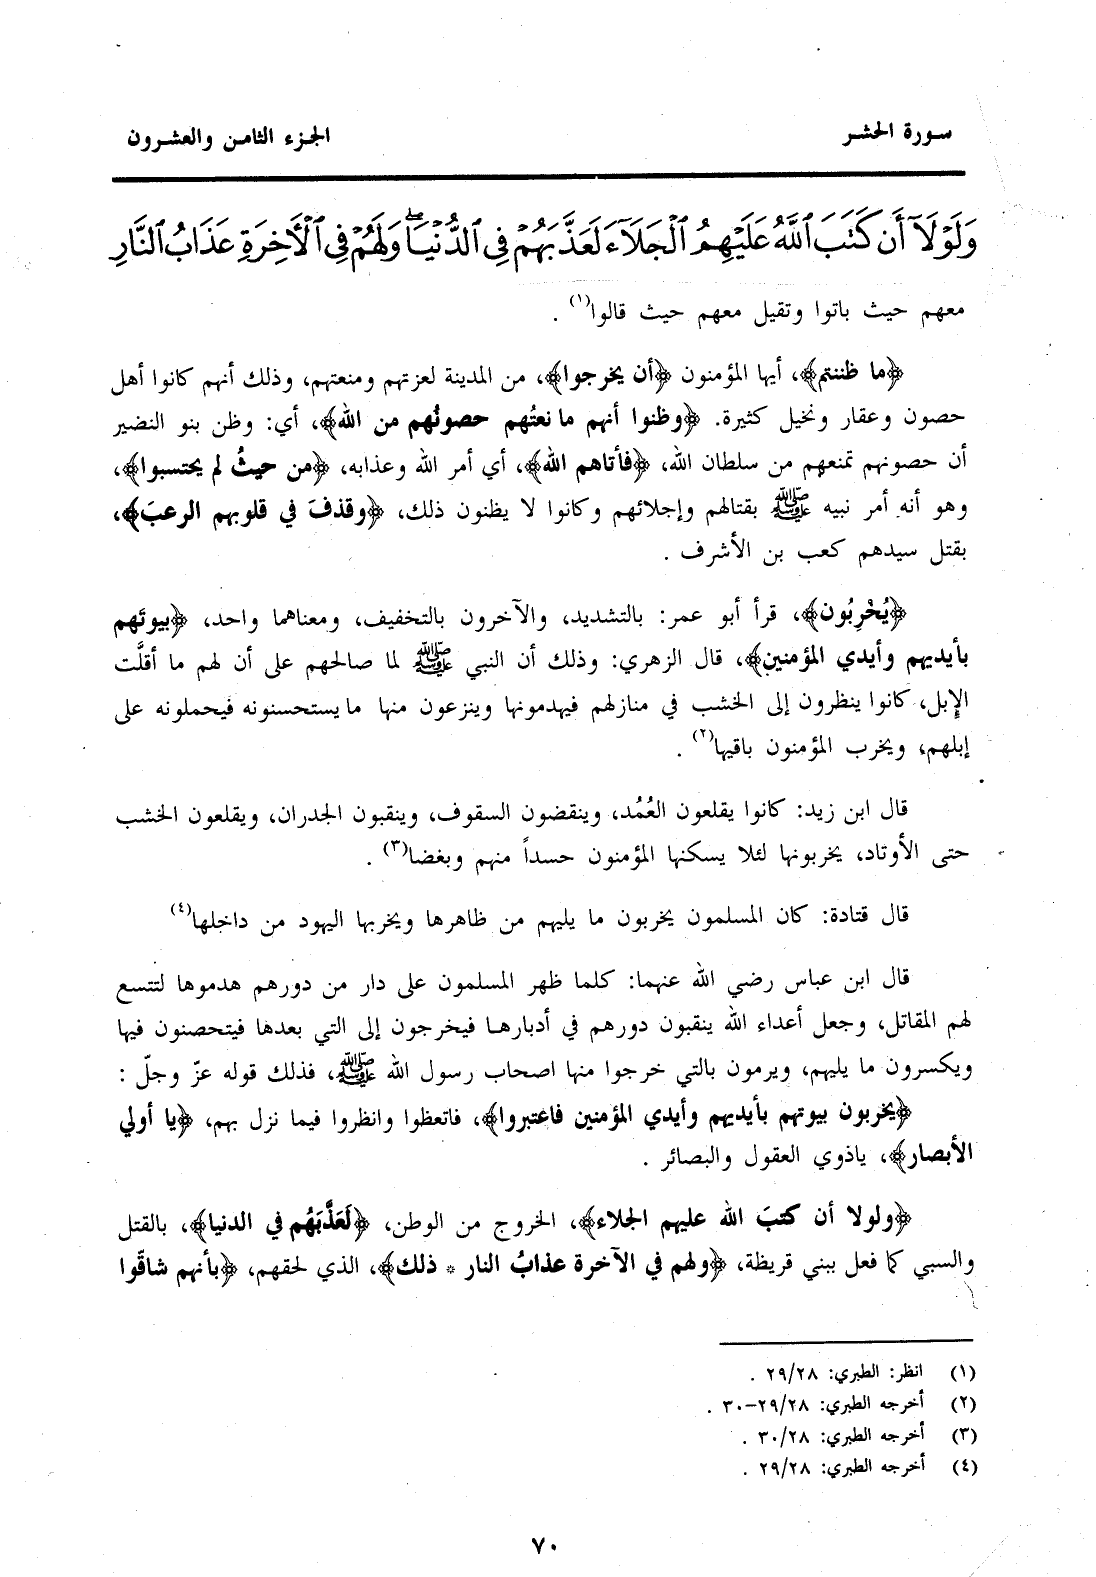 سورة الحشر
الجزء الثامن والعشرون
وَلَوْلَآ أَن كَتَبَ ٱللَّهُ عَلَيْهِمُ ٱلْجَلَآءَ لَعَذَّبَهُمْ فِى ٱلدُّنْيَا ۖ وَلَهُمْ فِى ٱلْأَخِرَةِ عَذَابُ ٱلنَّارِ
معهم حيث باتوا وتقيل معهم حيث قالوا(١) .
﴿ما ظننتم﴾، أيها المؤمنون ﴿أن يخرجوا﴾، من المدينة لعزتهم ومنعتهم، وذلك أنهم كانوا أهل
حصون وعقار ونخيل كثيرة. ﴿وظنوا أنهم مانعتُهم حصونُهم من الله﴾، أي: وظن بنو النضير
أن حصونهم تمنعهم من سلطان الله، ﴿فأتاهم الله﴾، أي أمر الله وعذابه، ﴿من حيثُ لم يحتسبوا﴾،
وهو أنه أمر نبيه ﷺ بقتالهم وإجلائهم وكانوا لا يظنون ذلك، ﴿وقذفَ في قلوبهم الرعبَ﴾،
بقتل سيدهم كعب بن الأشرف .
﴿يُخْرِبُون﴾، قرأ أبو عمر: بالتشديد، والآخرون بالتخفيف، ومعناهما واحد، ﴿بيوتَهم
بأيديهم وأيدي المؤمنين﴾، قال الزهري: وذلك أن النبي ﷺ لما صالحهم على أن لهم ما أقلَّت
الإِبل، كانوا ينظرون إلى الخشب في منازلهم فيهدمونها وينزعون منها ما يستحسنونه فيحملونه على
إبلهم، ويخرب المؤمنون باقيها(٢) .
قال ابن زيد: كانوا يقلعون العُمُد، وينقضون السقوف، وينقبون الجدران، ويقلعون الخشب
حتى الأوتاد، يخربونها لئلا يسكنها المؤمنون حسداً منهم وبغضا(٣) .
قال قتادة: كان المسلمون يخربون ما يليهم من ظاهرها ويخربها اليهود من داخلها(٤)
قال ابن عباس رضي الله عنهما: كلما ظهر المسلمون على دار من دورهم هدموها لتتسع
لهم المقاتل، وجعل أعداء الله ينقبون دورهم في أدبارهـا فيخرجون إلى التي بعدها فيتحصنون فيها
ويكسرون ما يليهم، ويرمون بالتي خرجوا منها اصحاب رسول الله ﷺ، فذلك قوله عزّ وجلّ :
﴿يخربون بيوتهم بأيديهم وأيدي المؤمنين فاعتبروا﴾، فاتعظوا وانظروا فيما نزل بهم، ﴿يا أولي
الأبصار﴾، ياذوي العقول والبصائر .
﴿ولولا أن كتبَ الله عليهم الجلاء﴾، الخروج من الوطن، ﴿لَعَذَّبَهُم في الدنيا﴾، بالقتل
والسبي كما فعل ببني قريظة، ﴿ولهم في الآخرة عذابُ النار * ذلك﴾، الذي لحقهم، ﴿بأنهم شاقّوا
(١) انظر: الطبري: ٢٩/٢٨ .
(٢) أخرجه الطبري: ٢٩/٢٨-٣٠ .
(٣) أخرجه الطبري: ٣٠/٢٨ .
(٤) أخرجه الطبري: ٢٩/٢٨ .
٧٠